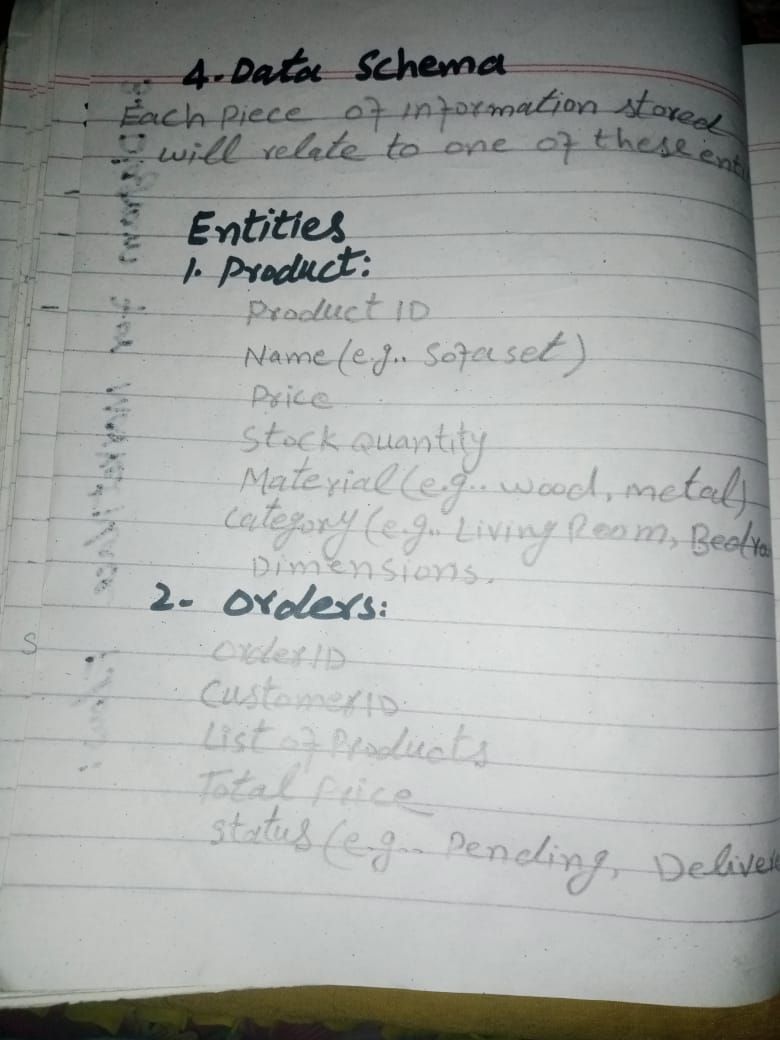 4. Data Schema
: Each piece of information stored
will relate to one of these enti
Entities
1. Product:
Product ID
Name (e.g.. Sofa set)
Price
Stock Quantity
Material (e.g.. wood, metal)
Category (e.g.. Living Room, Bedro
Dimensions.
2- Orders:
Order ID
Customer ID
List of Products
Total Price
Status (e.g.. Pending, Deliver
S